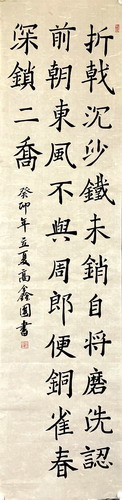 折戟沉沙鐵未銷自將磨洗認
前朝東風不與周郎便銅雀春
深鎖二喬
癸卯年立夏高鑫國書